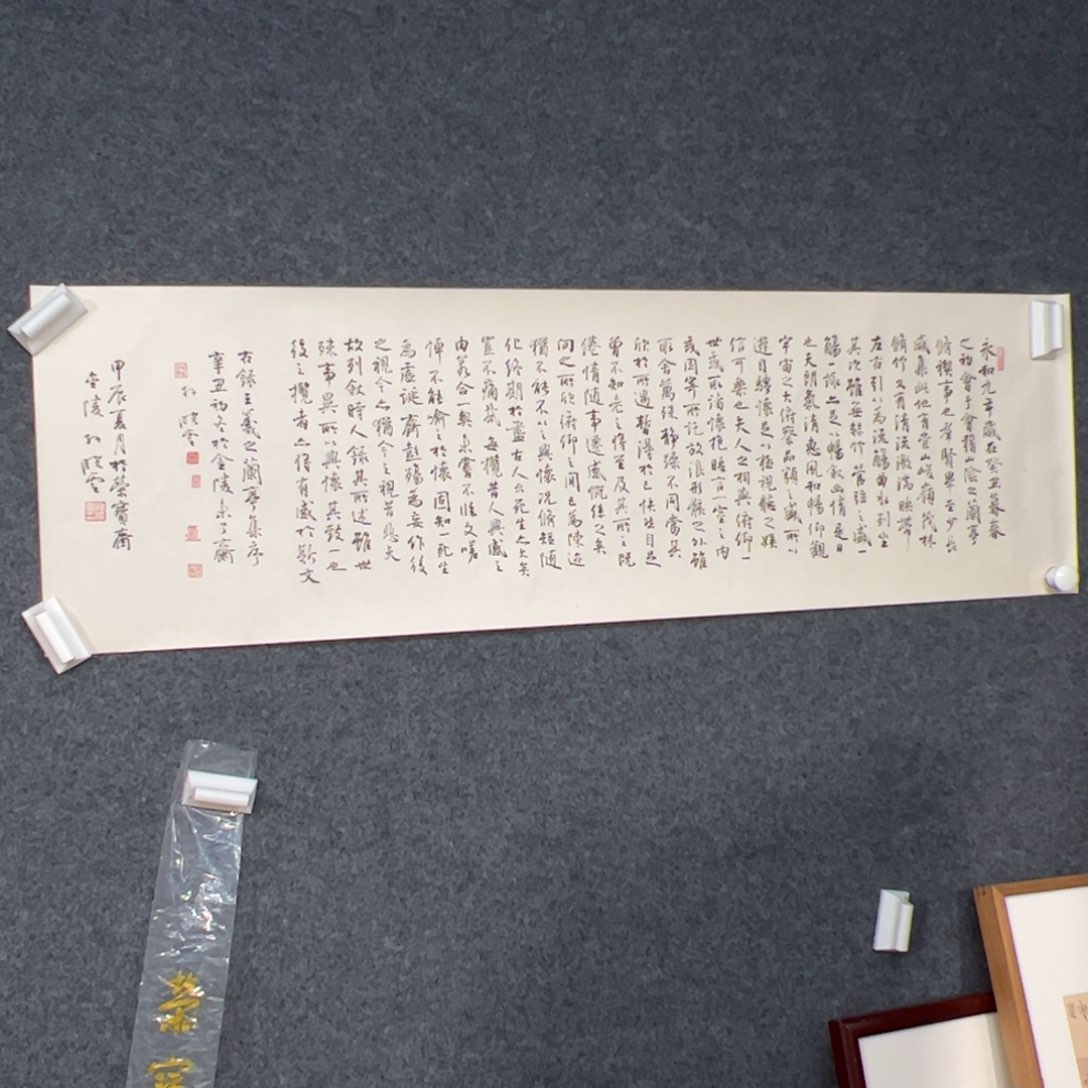 永和九年歲在癸丑暮春
之初會于會稽山陰之蘭亭
脩禊事也羣賢畢至少長
咸集此地有崇山峻嶺茂林
脩竹又有清流激湍映帶
左右引以為流觴曲水列坐
其次雖無絲竹管弦之盛一
觴一詠亦足以暢敘幽情是日
也天朗氣清惠風和暢仰觀
宇宙之大俯察品類之盛所以
遊目騁懷足以極視聽之娛
信可樂也夫人之相與俯仰一
世或取諸懷抱晤言一室之內
或因寄所託放浪形骸之外雖
取舍萬殊静躁不同當其
欣於所遇暫得於己快然自足
曾不知老之將至及其所之既
倦情隨事遷感慨係之矣
向之所欣俯仰之間已為陳迹
猶不能不以之興懷況脩短隨
化終期於盡古人云死生亦大矣
豈不痛哉每攬昔人興感之
由若合一契未嘗不臨文嗟
悼不能喻之於懷固知一死生
為虛誕齊彭殤為妄作後
之視今亦猶今之視昔悲夫
故列敘時人錄其所述雖世
殊事異所以興懷其致一也
後之攬者亦將有感於斯文
右錄王羲之蘭亭集序
辛丑初冬於金陵未了齋
孫曉雲
甲辰夏月於榮寶齋
金陵孫曉雲
榮